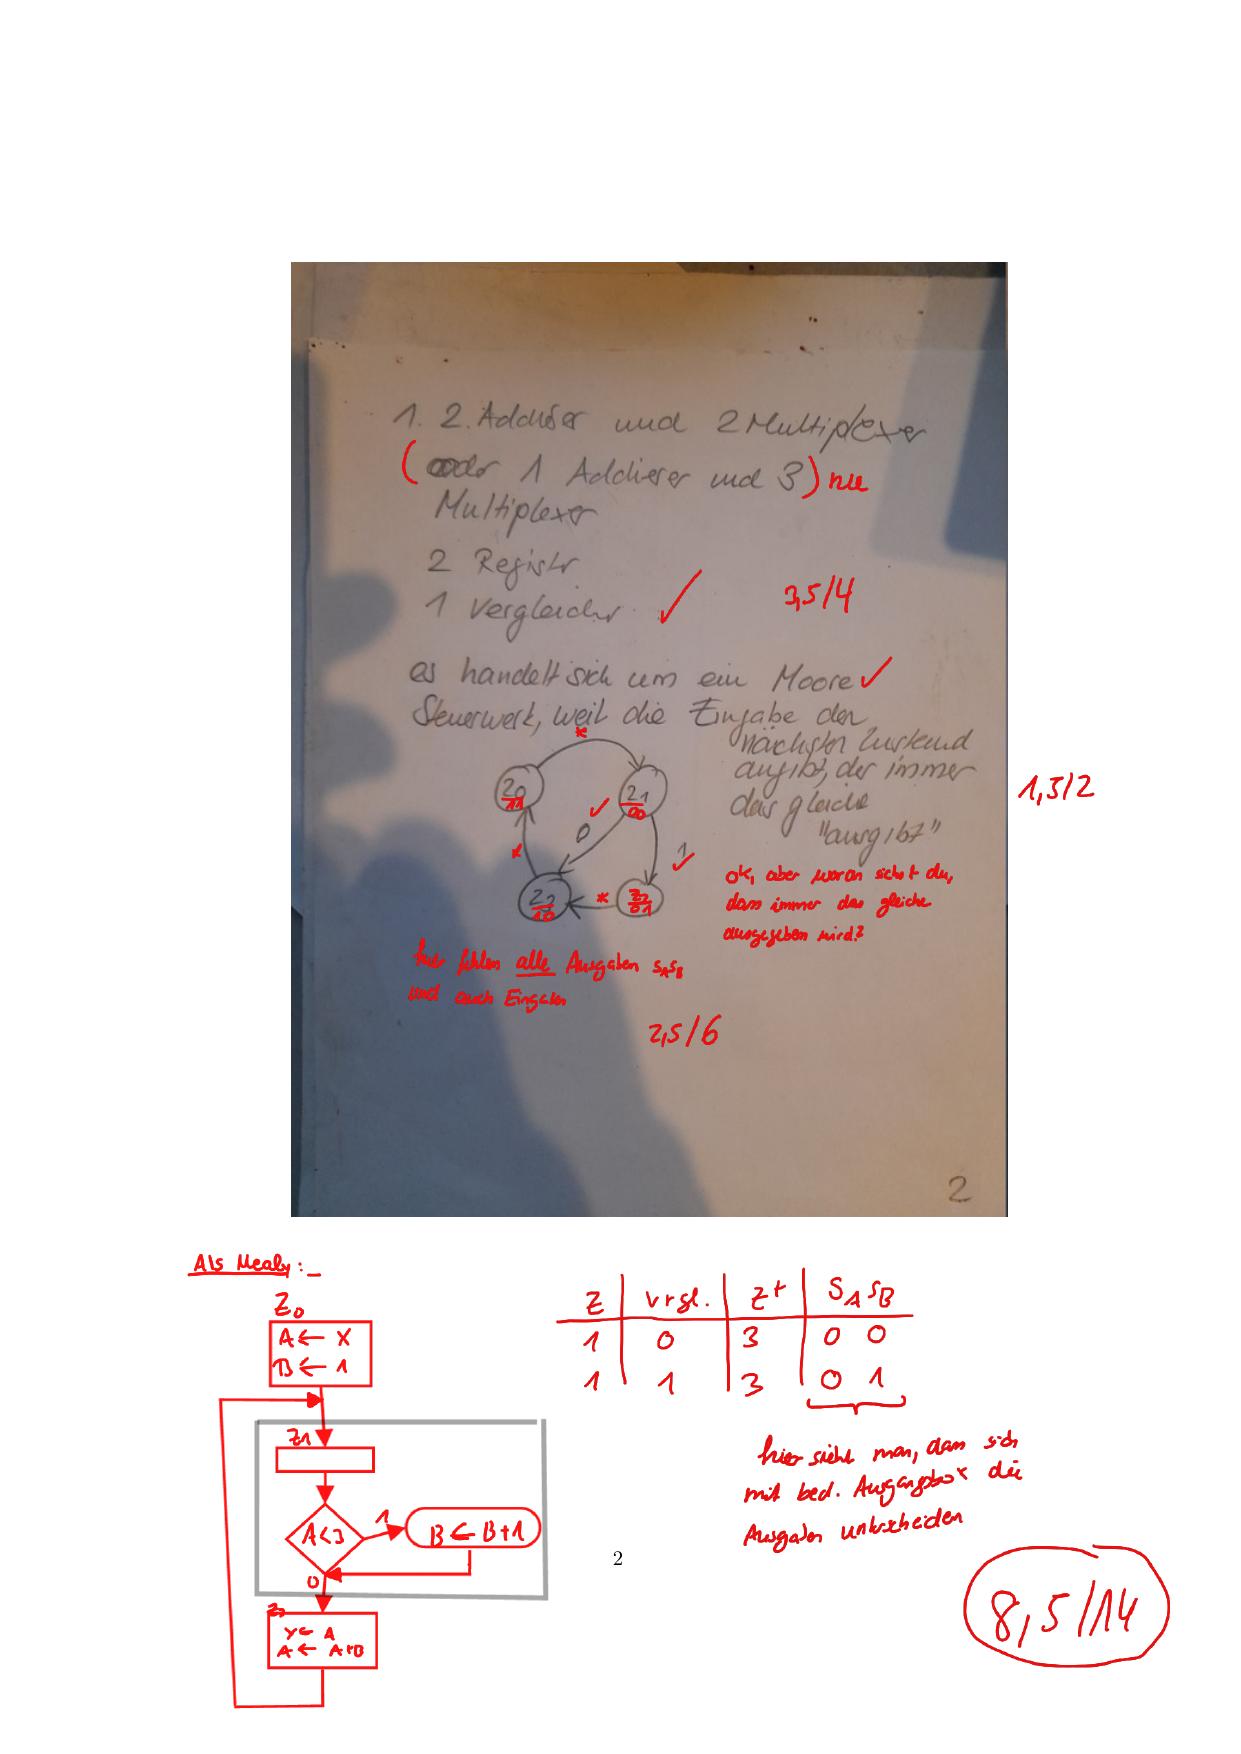 1. 2. Addierer und 2 Multiplexer
(oder 1 Addierer und 3) ne
Multiplexer
2 Register
1 Vergleicher ✓ 3,5/4
es handelt sich um ein Moore ✓
Steuerwerk, weil die Eingabe den
nächsten Zustand
angibt, der immer
das gleiche
"ausgibt"
1,5/2
*
Z0
11
Z1
00
✓
0
1
✓
*
Z3
10
*
Z2
01
ok, aber woran siehst du,
dass immer das gleiche
ausgegeben wird?
hier fehlen alle Ausgaben SASB
und auch Eingaben
2,5/6
2
Als Mealy:
Z0
A ← X
B ← 1
Z1
A<3
1
B ← B+1
0
Y ← A
A ← A+B
Z vrgl. Z+ SA SB
1 0 3 0 0
1 1 3 0 1
hier sieht man, dass sich
mit bed. Ausgangsbox die
Ausgaben unterscheiden
2
8,5/14